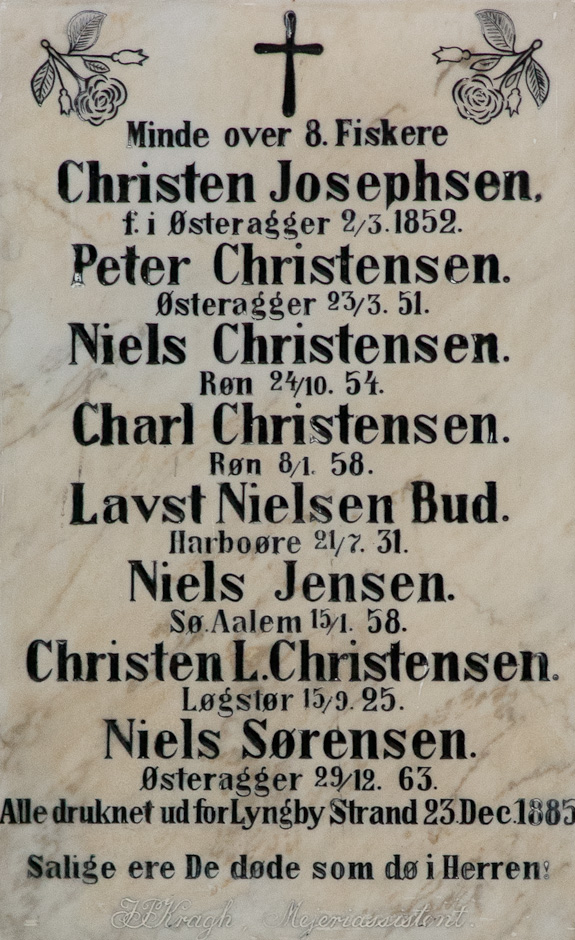 Minde over 8. Fiskere
Christen Josephsen.
f. i Østeragger 2/3.1852.
Peter Christensen.
Østeragger 23/3. 51.
Niels Christensen.
Røn 24/10. 54.
Charl Christensen.
Røn 8/1. 58.
Lavst Nielsen Bud.
Harboøre 21/7. 31.
Niels Jensen.
Sø. Aalem 15/1. 58.
Christen L. Christensen.
Løgstør 15/9. 25.
Niels Sørensen.
Østeragger 29/12. 63.
Alle druknet ud for Lyngby Strand 23.Dec.1885
Salige ere De døde som dø i Herren!
Kragh Mejeriassistent.